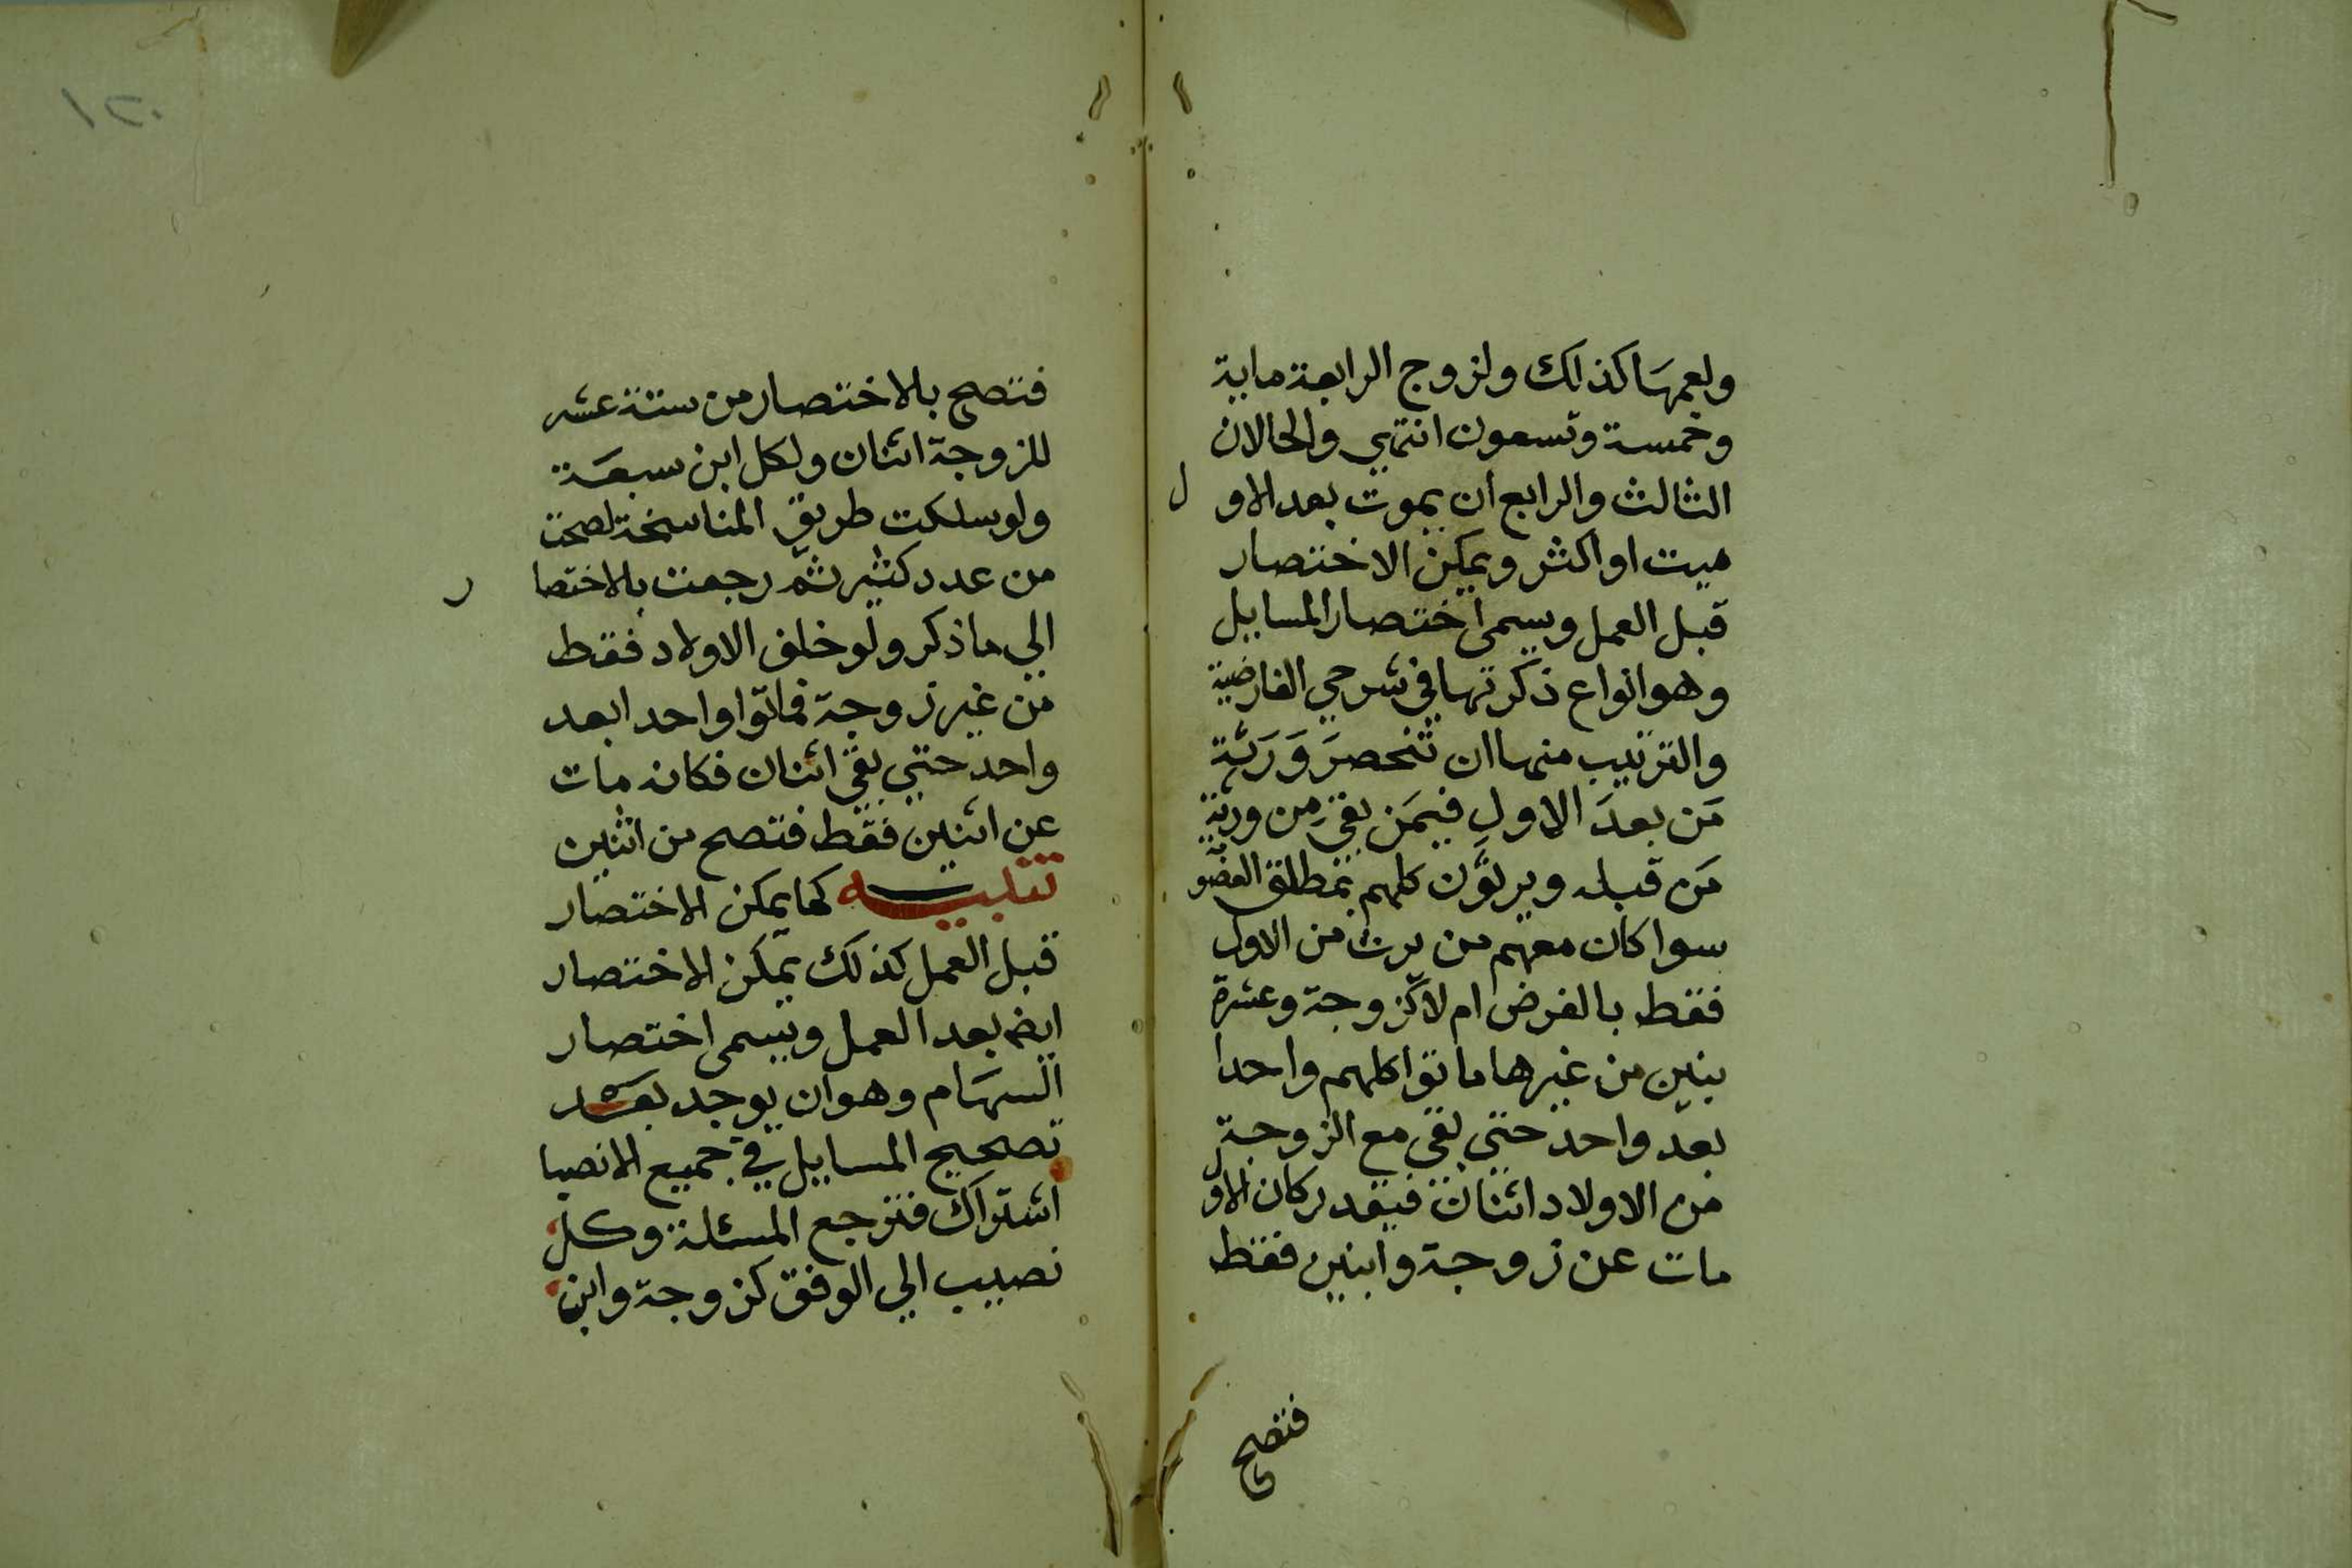 ولعمها كذلك ولزوج الرابعة ماية
وخمسة وتسعون انتهى والحالان
الثالث والرابع ان يموت بعد الاول
ميت او اكثر ويمكن الاختصار
قبل العمل ويسمى اختصار المسايل
وهو انواع ذكرتها في شرحي الفارضية
والترتيب منها ان تنحصرَ وَرَثة
مَن بعدَ الاولِ فيمَن بقي مِن ورثةِ
مَن قبله ويرثون كلهم بمطلق العصو
سوا كان معهم من يرث من الاول
فقط بالفرض ام لا كزوجة وعشرة
بنين من غيرها ماتوا كلهم واحدا
بعد واحد حتي بقي مع الزوجة
من الاولاد اثنان فيقدر كان الاول
مات عن زوجة وابنين فقط
فتصح
١٢٠
فتصح بالاختصار من ستة عشر
للزوجة اثنان ولكل ابن سبعَة
ولو سلكت طريق المناسخة لصحت
من عدد كثير ثم رجعت بالاختصار
الي ما ذكر ولو خلف الاولاد فقط
من غير زوجة فماتوا واحدا بعد
واحد حتي بقي اثنان فكانه مات
عن اثنين فقط فتصح من اثنين
تنبيه كما يمكن الاختصار
قبل العمل كذلك يمكن الاختصار
ايضا بعد العمل ويسمى اختصار
السهَام وهو ان يوجد بعَد
تصحيح المسايل في جميع الانصبا
اشتراك فترجع المسئلة وكل
نصيب الي الوفق كزوجة وابن